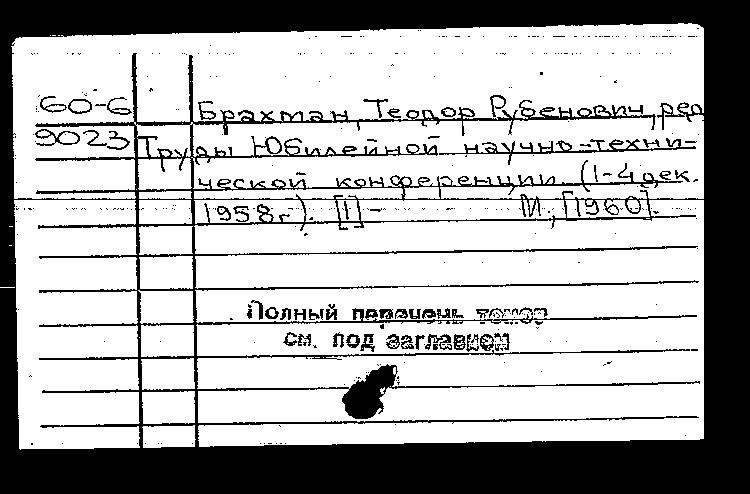 60-6 Брахман, Теодор Рубенович, ред
9023 Труды Юбилейной научно-техни-
ческой конференции (1-4 дек.
1958г). [1] - М., [1960].
Полный перечень томов
см. под заглавием